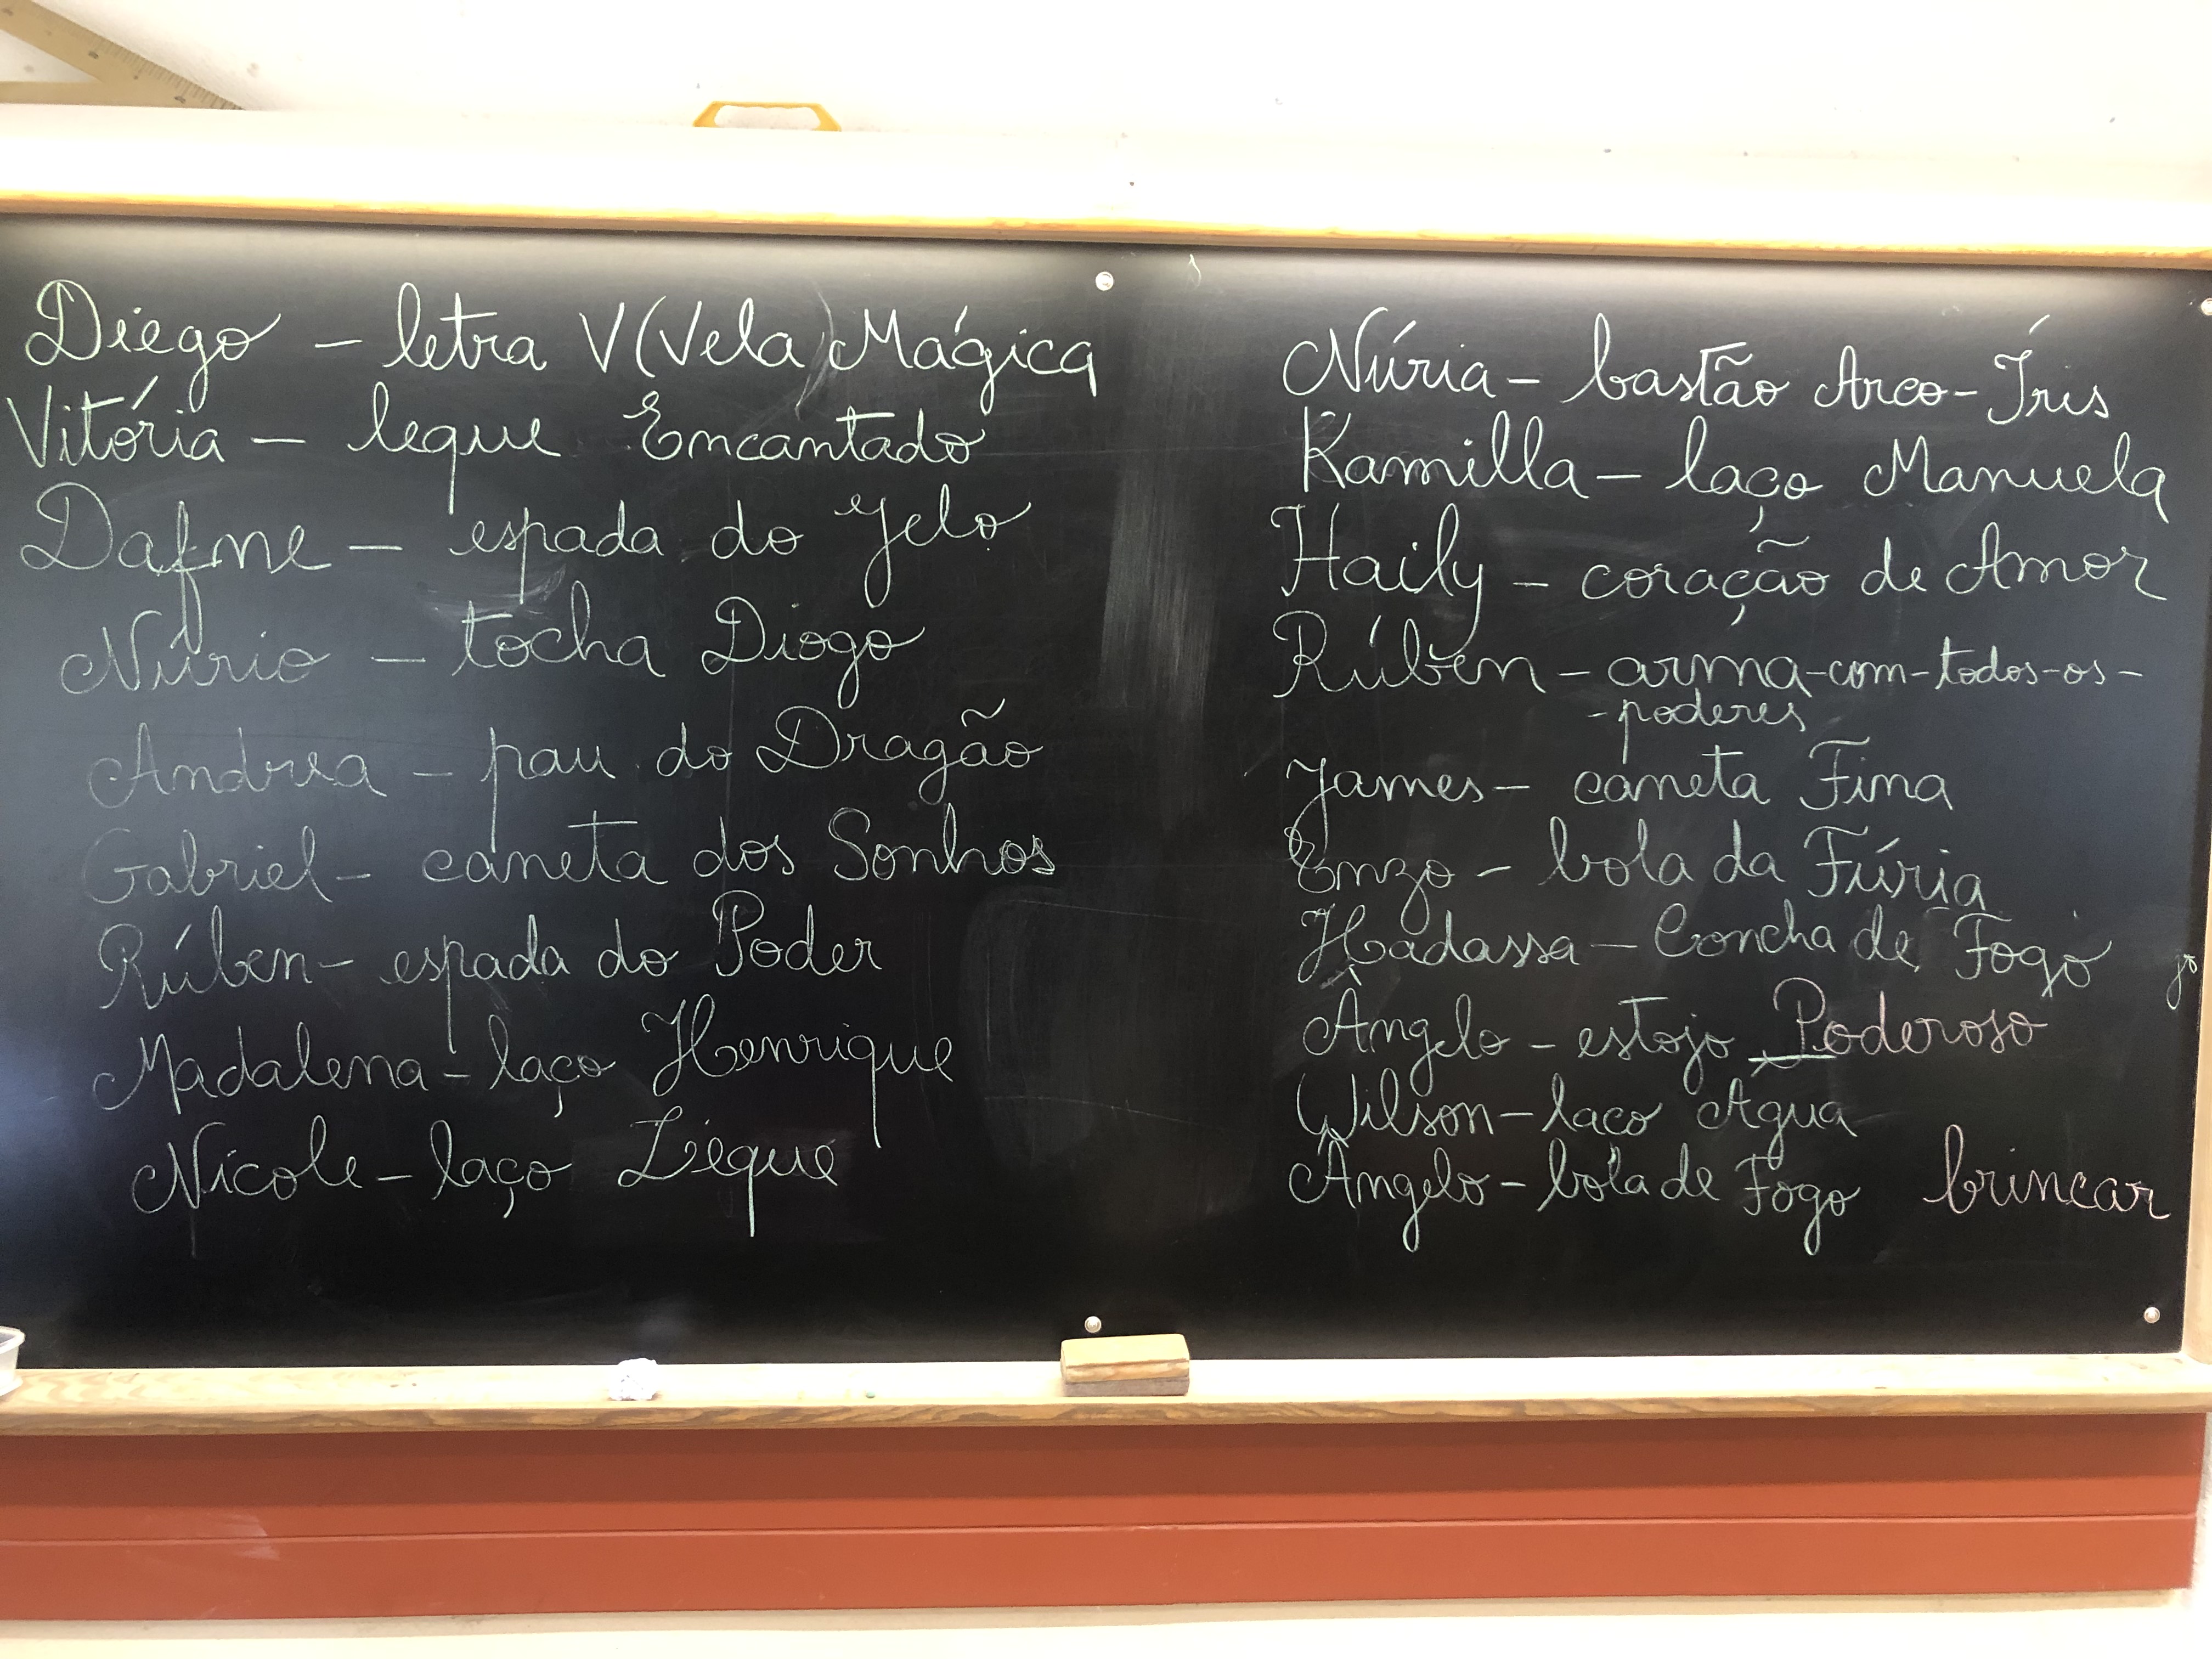 Diego - letra V (Vela) Mágica
Vitória - leque Encantado
Dafne - espada do Gelo
Núrio - tocha Diogo
Andrea - pau do Dragão
Gabriel - caneta dos Sonhos
Rúben - espada do Poder
Madalena - laço Henrique
Nicole - laço Léque
Núria - bastão Arco-Íris
Kamilla - laço Manuela
Haily - coração de Amor
Rúben - arma-com-todos-os-
-poderes
James - caneta Fina
Enzo - bola da Fúria
Hadassa - Concha de Fogo
Ângelo - estojo Poderoso
Wilson - laco Água
Ângelo - bola de Fogo brincar